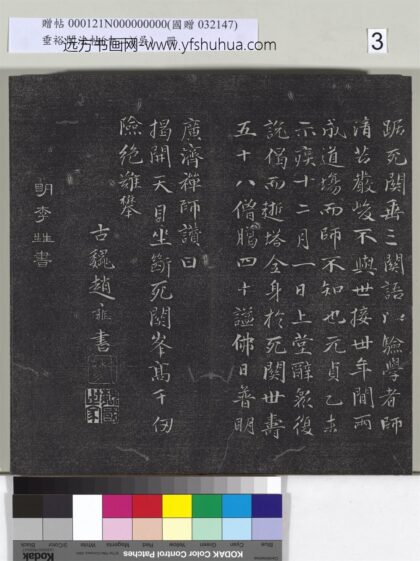 贈帖 000121N000000000(國贈 032147)
垂裕閣法帖
远方书画网-www.yfshuhua.com
3
踞死關垂三關語以驗學者師
清苦嚴峻不與世接世年間兩
成道場而師不知也元貞乙未
示疾十二月一日上堂辭衆復
說偈而逝塔全身於死関世壽
五十八僧臘四十謚佛日普明
廣濟禪師讚曰
揭開天目坐斷死関峯髙千仞
險絶難攀
古巍趙雍書
明李書
KODAK Color Control Patches
Blue
Cyan
Green
Yellow
Red
Magenta
White
3/Color
Black
Kodak